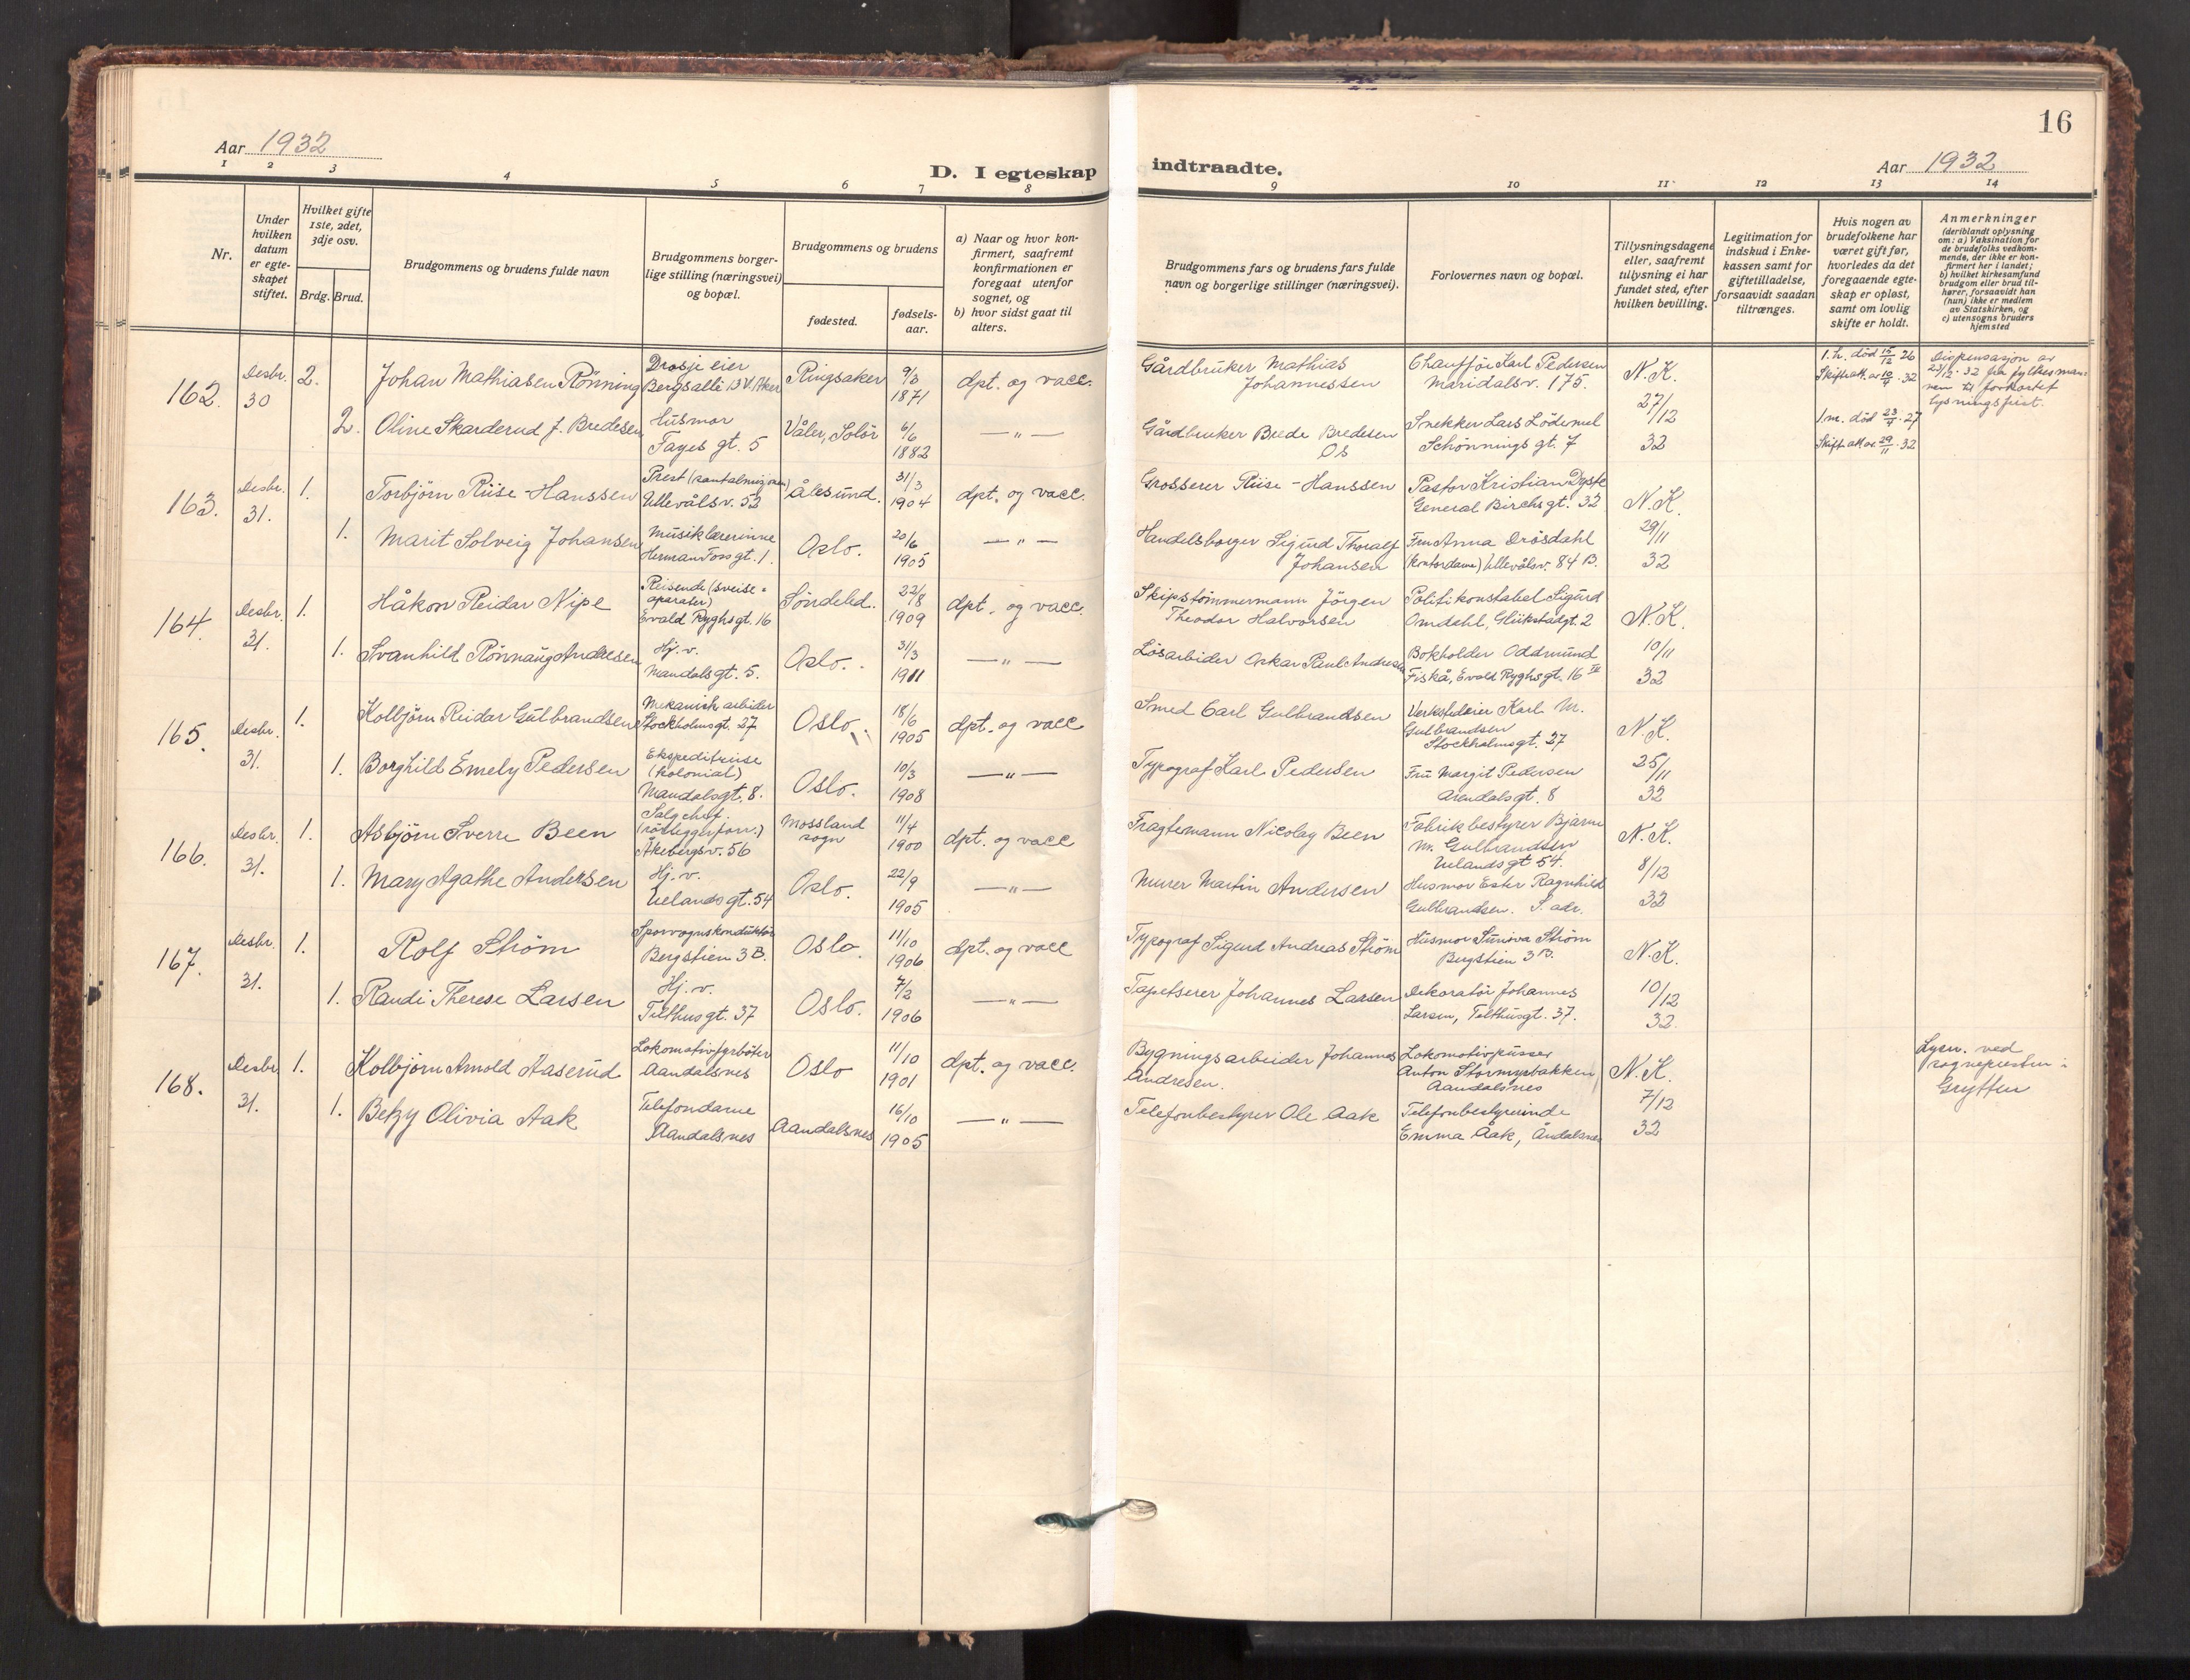 16
Aar 1932
D. I egteskap indtraadte.
Aar 1932
1 2 3 4 5 6 7 8 9 10 11 12 13 14
Nr.
Under hvilken datum er egte-skapet stiftet.
Hvilket gifte 1ste, 2det, 3dje osv.
Brdg. Brud.
Brudgommens og brudens fulde navn
Brudgommens borger-lige stilling (næringsvei) og bopæl.
Brudgommens og brudens
fødested.
fødsels-aar.
a) Naar og hvor kon-firmert, saafremt konfirmationen er foregaat utenfor sognet, og
b) hvor sidst gaat til alters.
Brudgommens fars og brudens fars fulde navn og borgerlige stillinger (næringsvei).
Forlovernes navn og bopæl.
Tillysningsdagene eller, saafremt tillysning ei har fundet sted, efter hvilken bevilling.
Legitimation for indskud i Enke-kassen samt for giftetilladelse, forsaavidt saadan tiltrænges.
Hvis nogen av brudefolkene har været gift før, hvorledes da det foregaaende egte-skap er opløst, samt om lovlig skifte er holdt.
Anmerkninger
(deriblandt oplysning om: a) Vaksination for de brudefolks vedkom-mende, der ikke er kon-firmert her i landet; b) hvilket kirkesamfund brudgom eller brud til-hører, forsaavidt han (hun) ikke er medlem av Statskirken, og c) utensogns bruders hjemsted
162. Desbr. 30 2. Johan Mathiasen Rönning
Drosje eier
Bergsalle 13 V. Aker
Ringsaker 9/3 1871 dpt. og vacc.
Gårdbruker Mathias
Johannessen
Chaufför Karl Pedersen
Maridalsv. 175.
N.K. 27/12 32
1. h. död 15/12 26
Skifteatt. av 10/9 . 32
Dispensasjon av
23/12 . 32 fra fylkesman-
nen til forkortet
lysningsfrist.
2. Oline Skarderud f. Bredesen
Husmor
Fayes gt. 5
Våler, Solör 6/6 1882 — " —
Gårdbruker Brede Bredesen
Os
Snekker Lars Lödemel
Schönnings gt. 7
1. m. död 23/4 . 27
Skifteatt. av 29/11 . 32
163. Desbr. 31. 1. Torbjörn Riise-Hanssen
Prest (santalmisjonen)
Ullevålsv. 52
Ålesund. 31/3 1904 dpt. og vacc.
Grosserer Riise-Hanssen
Pastor Kristian Dyste
General Birchs gt. 32
N.K. 29/11 32
1. Marit Solveig Johansen
Musiklærerinne
Herman Foss gt. 1.
Oslo. 20/6 1905 — " —
Handelsborger Sigurd Thoralf
Johansen
Fru Anna Drösdahl
(Kontordame) Ullevålsv. 84 B.
164. Desbr. 31. 1. Håkon Reidar Nipe
Reisende (sveise-
aparater)
Evald Ryghsgt. 16
Söndeled. 22/8 1909 dpt. og vacc.
Skipstömmermann Jörgen
Theodor Halvorsen
Politikonstabel Sigurd
Omdahl, Glückstadgt. 2
N.K. 10/11 32
1. Svanhild Rönnaug Andresen
Hj. v.
Mandalsgt. 5.
Oslo. 31/3 1911 — " —
Lösarbider Oskar Paul Andresen
Bokholder Oddmund
Fiskå, Evald Ryghsgt. 16 III
165. Desbr. 31. 1. Kolbjörn Reidar Gulbrandsen
Mekanisk arbeider
Stockholmsgt. 27
Oslo. 18/6 1905 dpt. og vacc
Smed Carl Gulbrandsen
Verkstedeier Karl M.
Gulbrandsen
Stockholmsgt. 27
N.K. 25/11 32
1. Borghild Emely Pedersen
Ekspeditrise
(Kolonial)
Mandalsgt. 8.
Oslo. 10/3 1908 — " —
Typograf Karl Pedersen
Fru Margit Pedersen
Arendalsgt. 8
166. Desbr. 31. 1. Asbjörn Sverre Been
Salgchef.
(rörleggerforr.)
Åkebergsv. 56
Mossland
sogn
11/4 1900 dpt. og vacc
Fragtemann Nicolay Been
Fabrikbestyrer Bjarne
M. Gulbrandsen
Uelandsgt 54.
N.K. 8/12 32
1. Mary Agathe Andersen
Hj. v.
Uelandsgt. 54
Oslo. 22/9 1905 — " —
Murer Martin Andersen
Husmor Ester Ragnhild
Gulbrandsen. S. adr.
167. Desbr. 31. 1. Rolf Ström
Sporvognskonduktör
Bergstien 3 B.
Oslo. 11/10 1906 dpt. og vacc
Typograf Sigurd Andreas Ström
Husmor Suniva Ström
Bergstien 3 B.
N.K. 10/12 32.
1. Randi Therese Larsen
Hj. v.
Telthusgt. 37
Oslo. 7/2 1906 — " —
Tapetserer Johannes Larsen
Dekoratör Johannes
Larsen, Telthusgt. 37.
168. Desbr. 31. 1. Kolbjörn Arnold Aaserud
Lokomotivfyrböter
Aandalsnes
Oslo 11/10 1901 dpt. og vacc.
Bygningsarbeider Johannes
Andresen.
Lokomotivpusser
Anton Stormyrbakken
Aandalsnes
N.K. 7/12 32
Lysn. ved
sognepresten i
Grytten
1. Betzy Olivia Aak
Telefondame
Aandalsnes
Aandalsnes 16/10 1905 — " —
Telefonbestyrer Ole Aak
Telefonbestyrerinde
Emma Aak, Åndalsnes